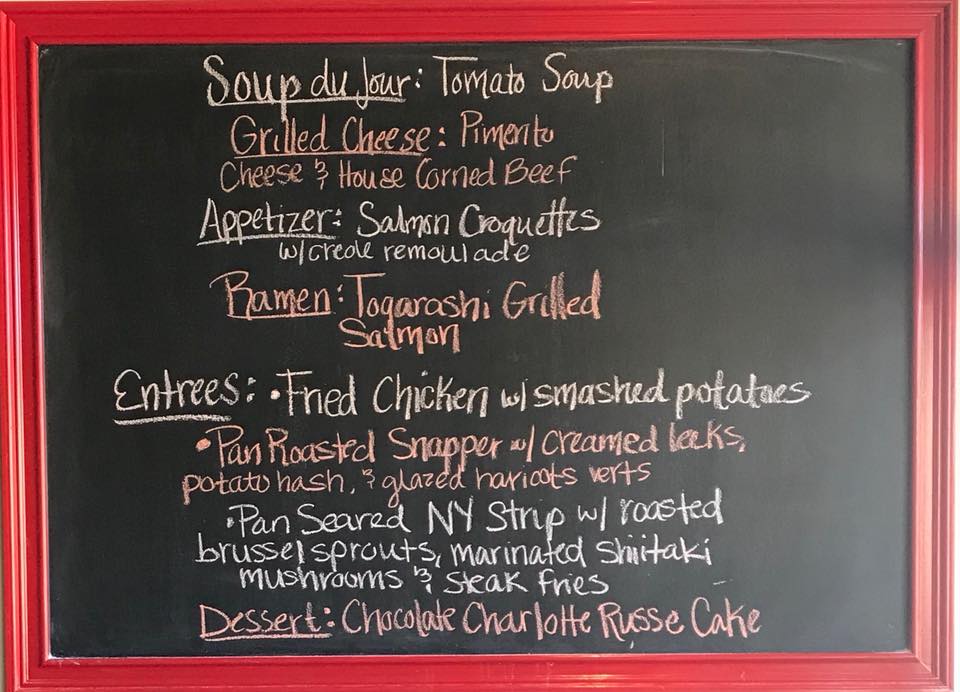 Soup du Jour: Tomato Soup
Grilled Cheese: Pimento
Cheese & House Corned Beef
Appetizer: Salmon Croquettes
w/creole remoulade
Ramen: Togarashi Grilled
Salmon
Entrees: • Fried Chicken w/ smashed potatoes
• Pan Roasted Snapper w/ creamed leeks,
potato hash, & glazed haricots verts
• Pan Seared NY Strip w/ roasted
brussel sprouts, marinated Shiitaki
mushrooms & steak fries
Dessert: Chocolate Charlotte Russe Cake